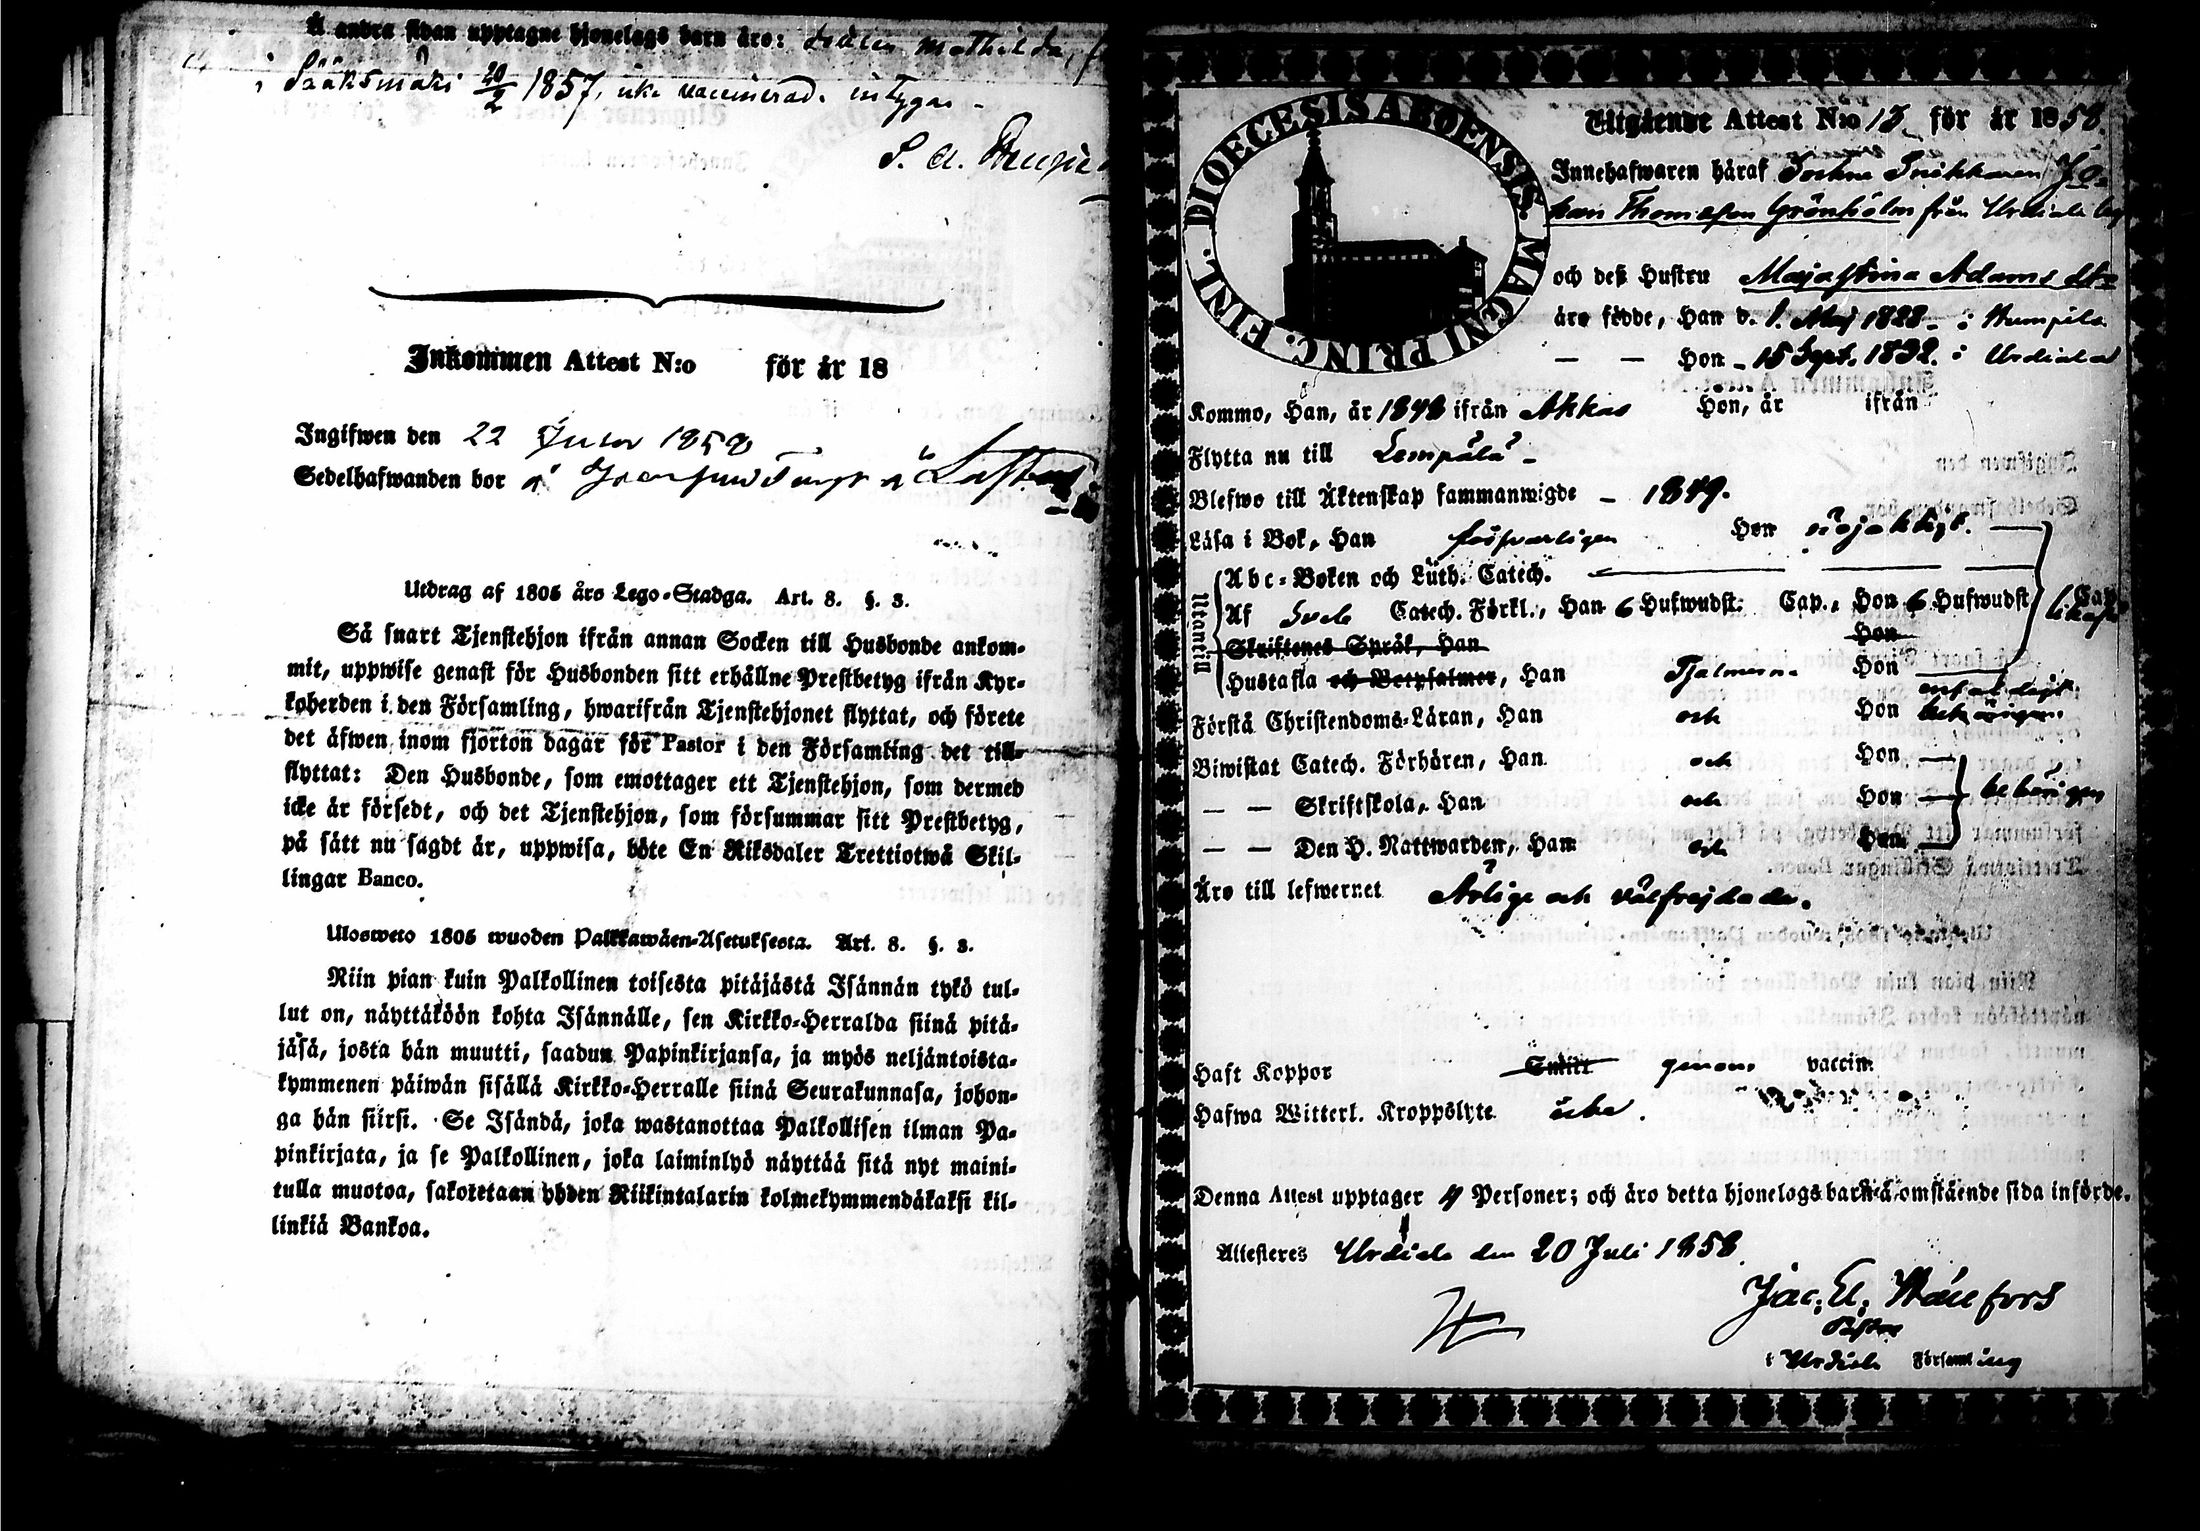 Å andra sidan upptagne hjonelags barn äro: Mathilda,
i Sääksmäki 20/2 1857, icke vaccinerad. intygar
S. A.
Inkommen Attest N:o för år 18
Ingifwen den 22 Juli 1858
Sedelhafwanden bor å
Utdrag af 1805 års Lego-Stadga. Art. 8. §. 3.
Så snart Tjenstehjon ifrån annan Socken till Husbonde ankom-
mit, uppwise genast för Husbonden sitt erhållne Prestbetyg ifrån Kyr-
koherden i den Församling, hwarifrån Tjenstehjonet flyttat, och förete
det äfwen inom fjorton dagar för Pastor i den Församling det till-
flyttat: Den Husbonde, som emottager ett Tjenstehjon, som dermed
icke är försedt, och det Tjenstehjon, som försummar sitt Prestbetyg,
på sätt nu sagdt är, uppwisa, böte En Riksdaler Trettiotwå Skil-
lingar Banco.
Ulosweto 1805 wuoden Palkkawäen-Asetuksesta. Art. 8. §. 3.
Niin pian kuin Palkollinen toisesta pitäjästä Isännän tykö tul-
lut on, näyttäköön kohta Isännälle, sen Kirkko-Herralda siinä pitä-
jäsä, josta hän muutti, saadun Papinkirjansa, ja myös neljäntoista-
kymmenen päiwän sisällä Kirkko-Herralle siinä Seurakunnasa, johon-
ga hän siirsi. Se Isändä, joka wastanottaa Palkollisen ilman Pa-
pinkirjata, ja se Palkollinen, joka laiminlyö näyttää sitä nyt maini-
tulla muotoa, sakotetaan yhden Riikintalarin kolmekymmendäkaksi kil-
linkiä Bankoa.
DIOECESIS ABOENSIS. MAGNI PRINC. FINL.
Utgående Attest N:o 13 för år 1858.
Innehafwaren häraf Jo-
han Thomasson Grönholm från Urdiala
och deß Hustru Maja Stina Adamsdtr
äro födde, Han d. 1. Maj 1828 i Humpila
— — Hon 15 Sept. 1832. i Urdiala
Kommo, Han, år 1848 ifrån Akkas Hon, år ifrån
Flytta nu till Lempälä
Blefwo till Äktenskap sammanwigde 1849.
Läsa i Bok, Han försvarligen Hon nöjaktigt.
Utantill
Abc-Boken och Luth. Catech.
Af Catech. Förkl., Han 6 Hufwudst: Cap., Hon 6 Hufwudst Cap
Skriftenes Språk, Han Hon
Hustafla och Botpsalmer, Han Hon
Förstå Christendoms-Läran, Han och Hon
Biwistat Catech. Förhören, Han och Hon
— — Skriftskola, Han och Hon behörigen
— — Den H. Nattwarden, Han och Hon
Äro till lefwernet Ärlige och välfrejdade.
Haft Koppor genom vaccin.
Hafwa Witterl. Kroppslyte icke.
Denna Attest upptager 4 Personer; och äro detta hjonelags barn å omstående sida införde.
Attesteres Urdiala den 20 Juli 1858.
Jac. El.
Pastor
i Urdiala Församling